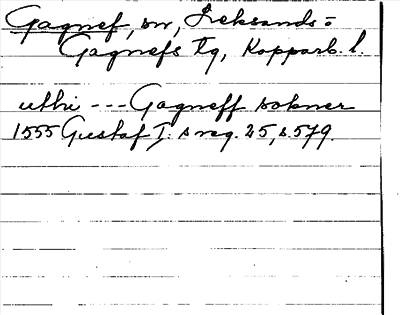 Gagnef, sn, Leksands=
Gagnefs tg, Kopparb. l.
uthi --- Gagneff sokner
1555 Gustaf I:s reg. 25, s. 579.